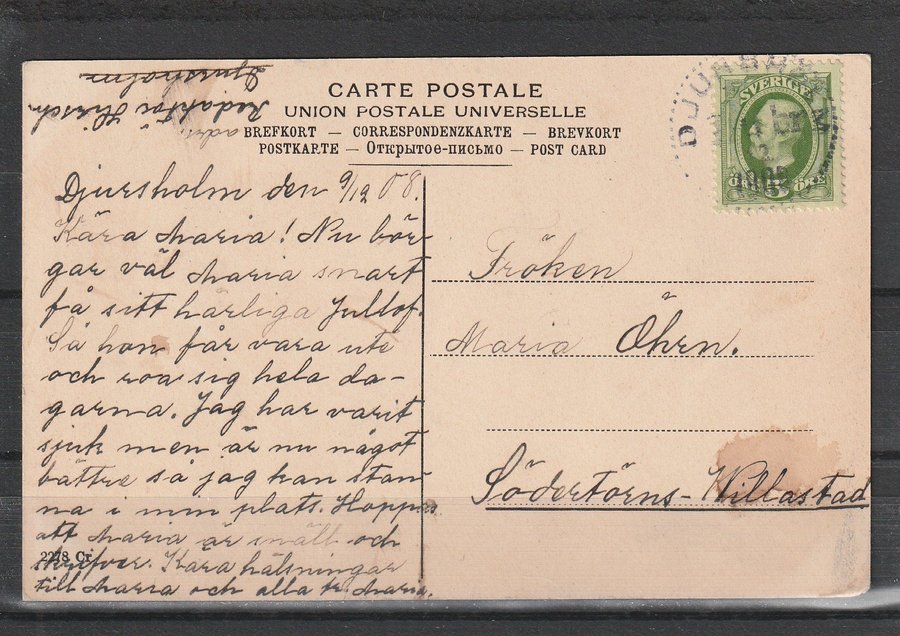 Redaktör Hirsch
Djursholm
adr.
CARTE POSTALE
UNION POSTALE UNIVERSELLE
BREFKORT — CORRESPONDENZKARTE — BREVKORT
POSTKARTE — Открытое-письмо — POST CARD
DJURSHOLM
SVERIGE
5
Djursholm den 9/12 08.
Kära Maria! Nu bör-
gar väl Maria snart
få sitt härliga Jullof.
Så hon får vara ute
och roa sig hela da-
garna. Jag har varit
sjuk men är nu något
bättre så jag kan stan-
na i min plats. Hoppas
att Maria är snäll och
skrifver. Kära hälsningar
till Maria och alla fr. Maria.
2278 Cr.
Fröken
Maria Öhrn.
Södertörns-Willastad